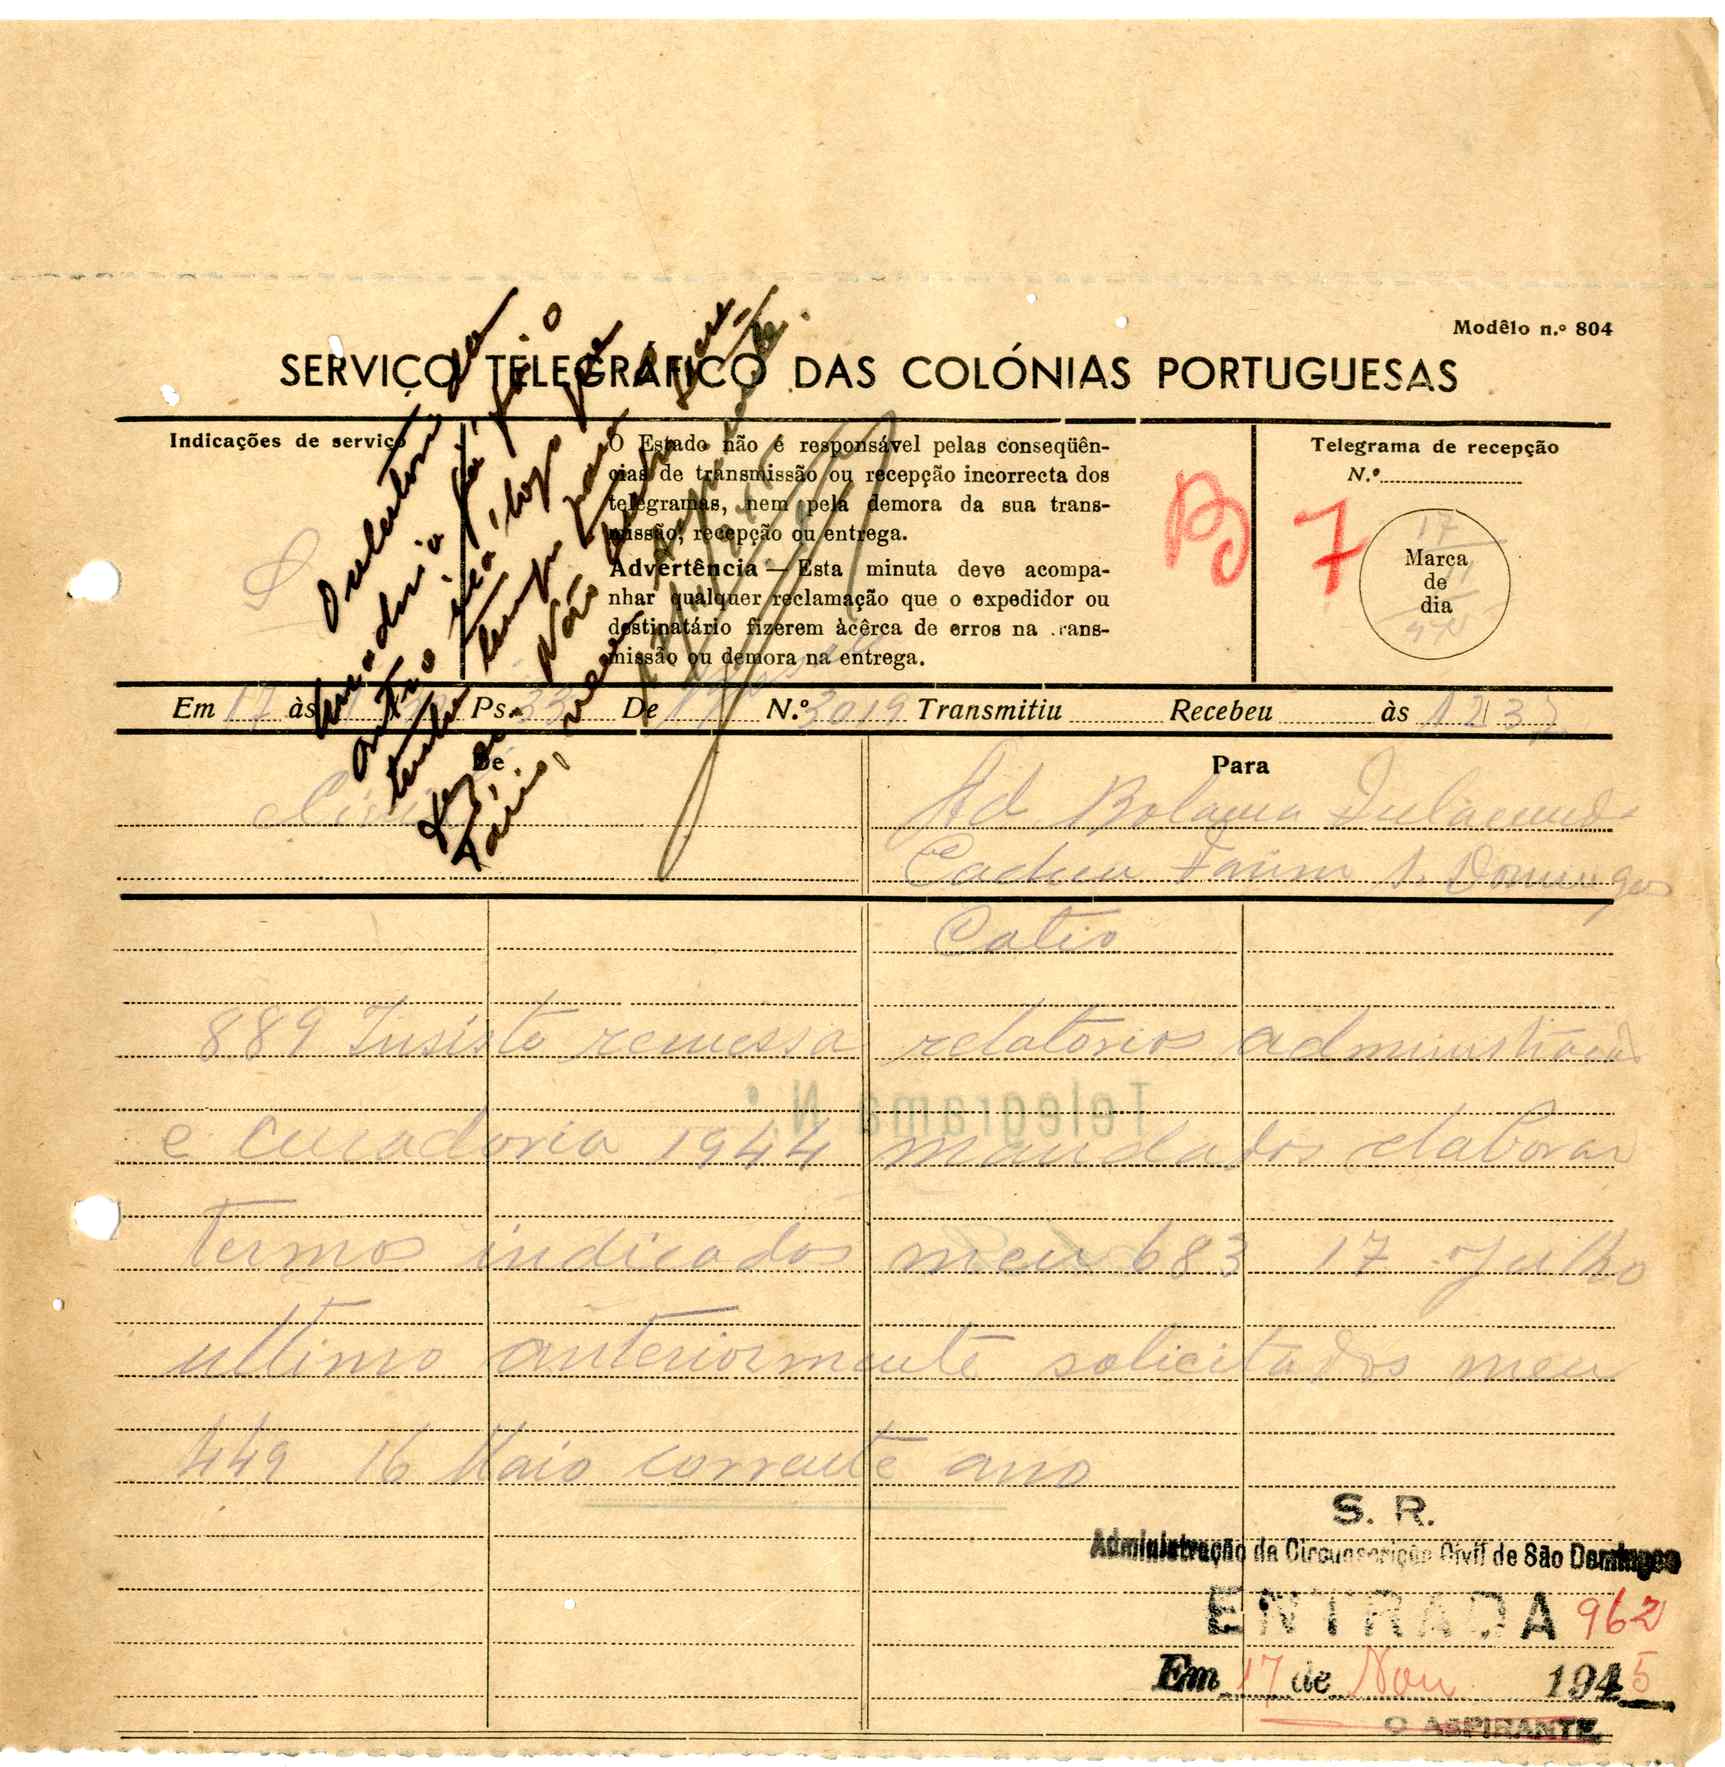 Modêlo n.º 804
SERVIÇO TELEGRÁFICO DAS COLÓNIAS PORTUGUESAS
Indicações de serviço
S
O Estado não é responsável pelas conseqüên-
cias de transmissão ou recepção incorrecta dos
telegramas, nem pela demora da sua trans-
missão, recepção ou entrega.
Advertência — Esta minuta deve acompa-
nhar qualquer reclamação que o expedidor ou
destinatário fizerem àcêrca de erros na trans-
missão ou demora na entrega.
Telegrama de recepção
N.º
7
17
Marca
de
dia
O relatorio da
Curadoria já foi. O
outro irá logo que
tenha tempo para
Em 17 às Ps. 33 De N.º 3019 Transmitiu Recebeu às 12 37
De
Para
Civil
Ad Bolama Fulacunda
Cacheu Farim S. Domingos
Catio
889 Insisto remessa relatorios administração
e curadoria 1944 mandados elaborar
termos indicados meu 683 17 Julho
ultimo anteriormente solicitados meu
449 16 Maio corrente ano
Telegrama N.º
S. R.
Administração da Circunscrição Civil de São Domingos
ENTRADA 962
Em 17 de Nov. 1945
O ASPIRANTE,